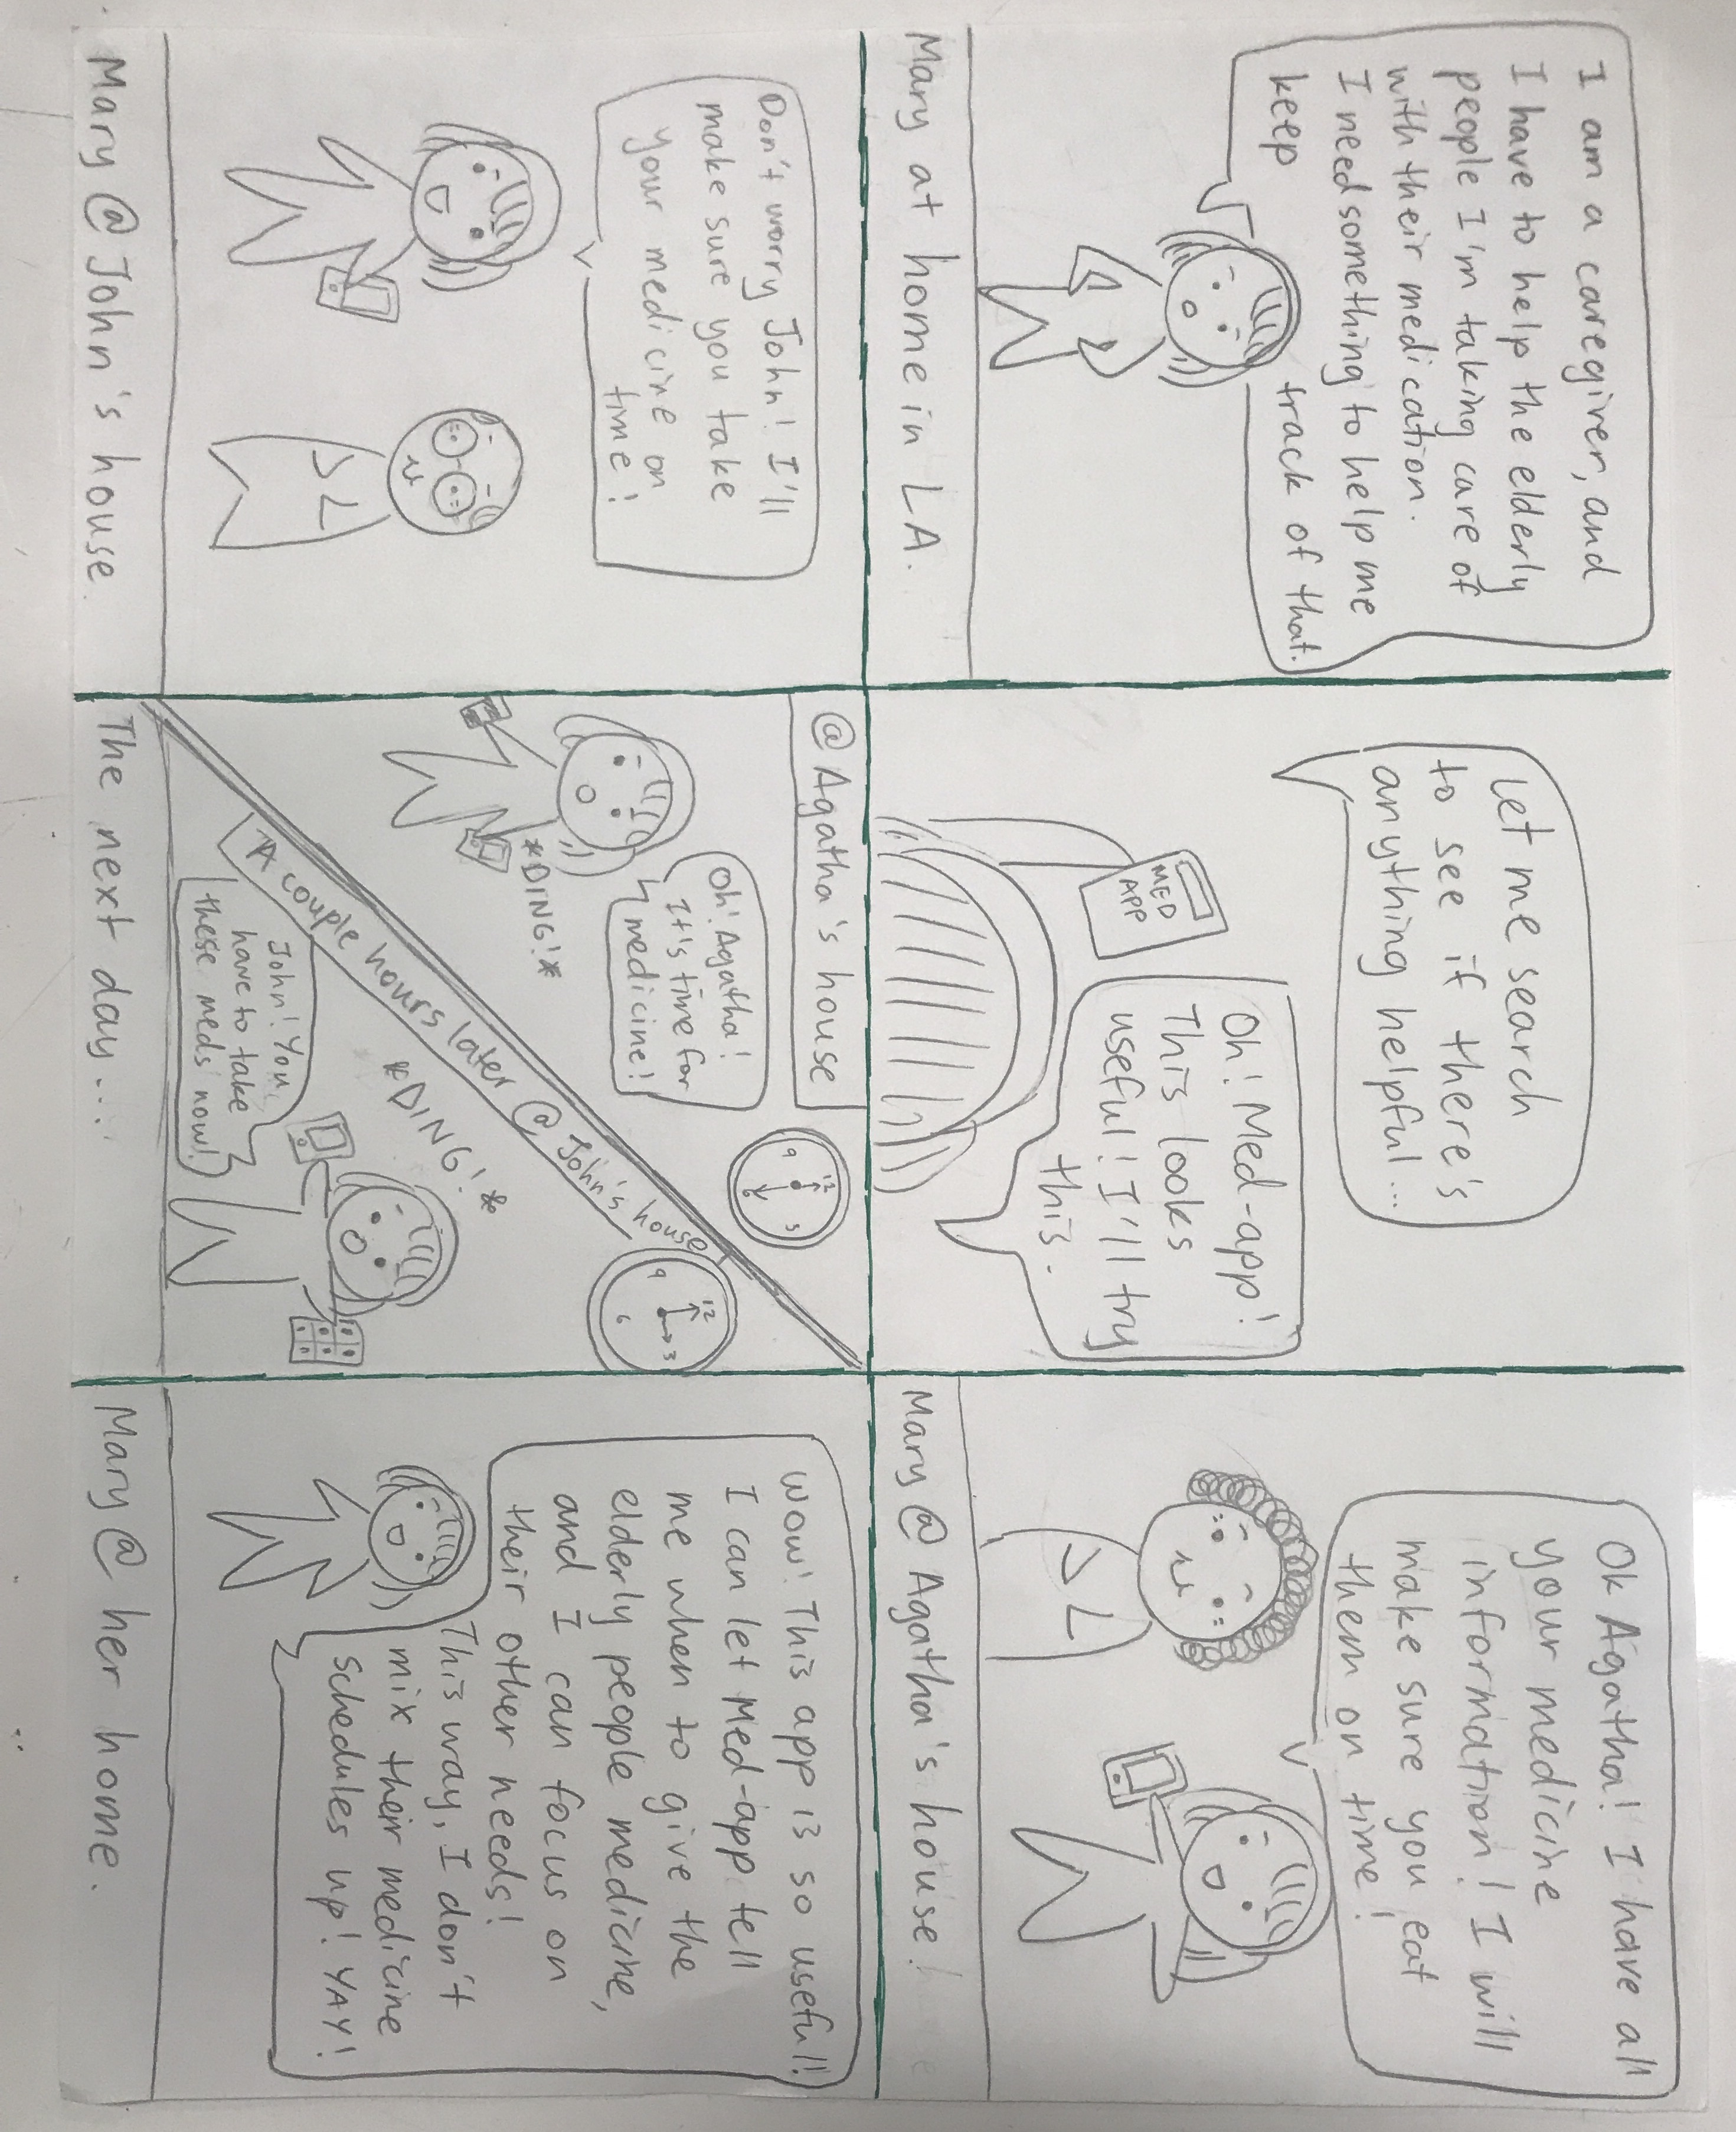 I am a caregiver, and
I have to help the elderly
people I'm taking care of
with their medication.
I need something to help me
keep track of that.
Mary at home in LA.
Let me search
to see if there's
anything helpful...
Oh! Med-app!
This looks
useful! I'll try
this.
MED
APP
Ok Agatha! I have all
your medicine
information! I will
make sure you eat
them on time!
Mary @ Agatha's house!
Don't worry John! I'll
make sure you take
your medicine on
time!
Mary @ John's house.
@ Agatha's house
12
9 3
6
Oh! Agatha!
It's time for
medicine!
*DING!*
A couple hours later @ John's house
12
9 3
6
*DING!*
John! You
have to take
these meds now!
The next day....
Wow! This app is so useful!
I can let Med-app tell
me when to give the
elderly people medicine,
and I can focus on
their other needs!
This way, I don't
mix their medicine
schedules up! YAY!
Mary @ her home.